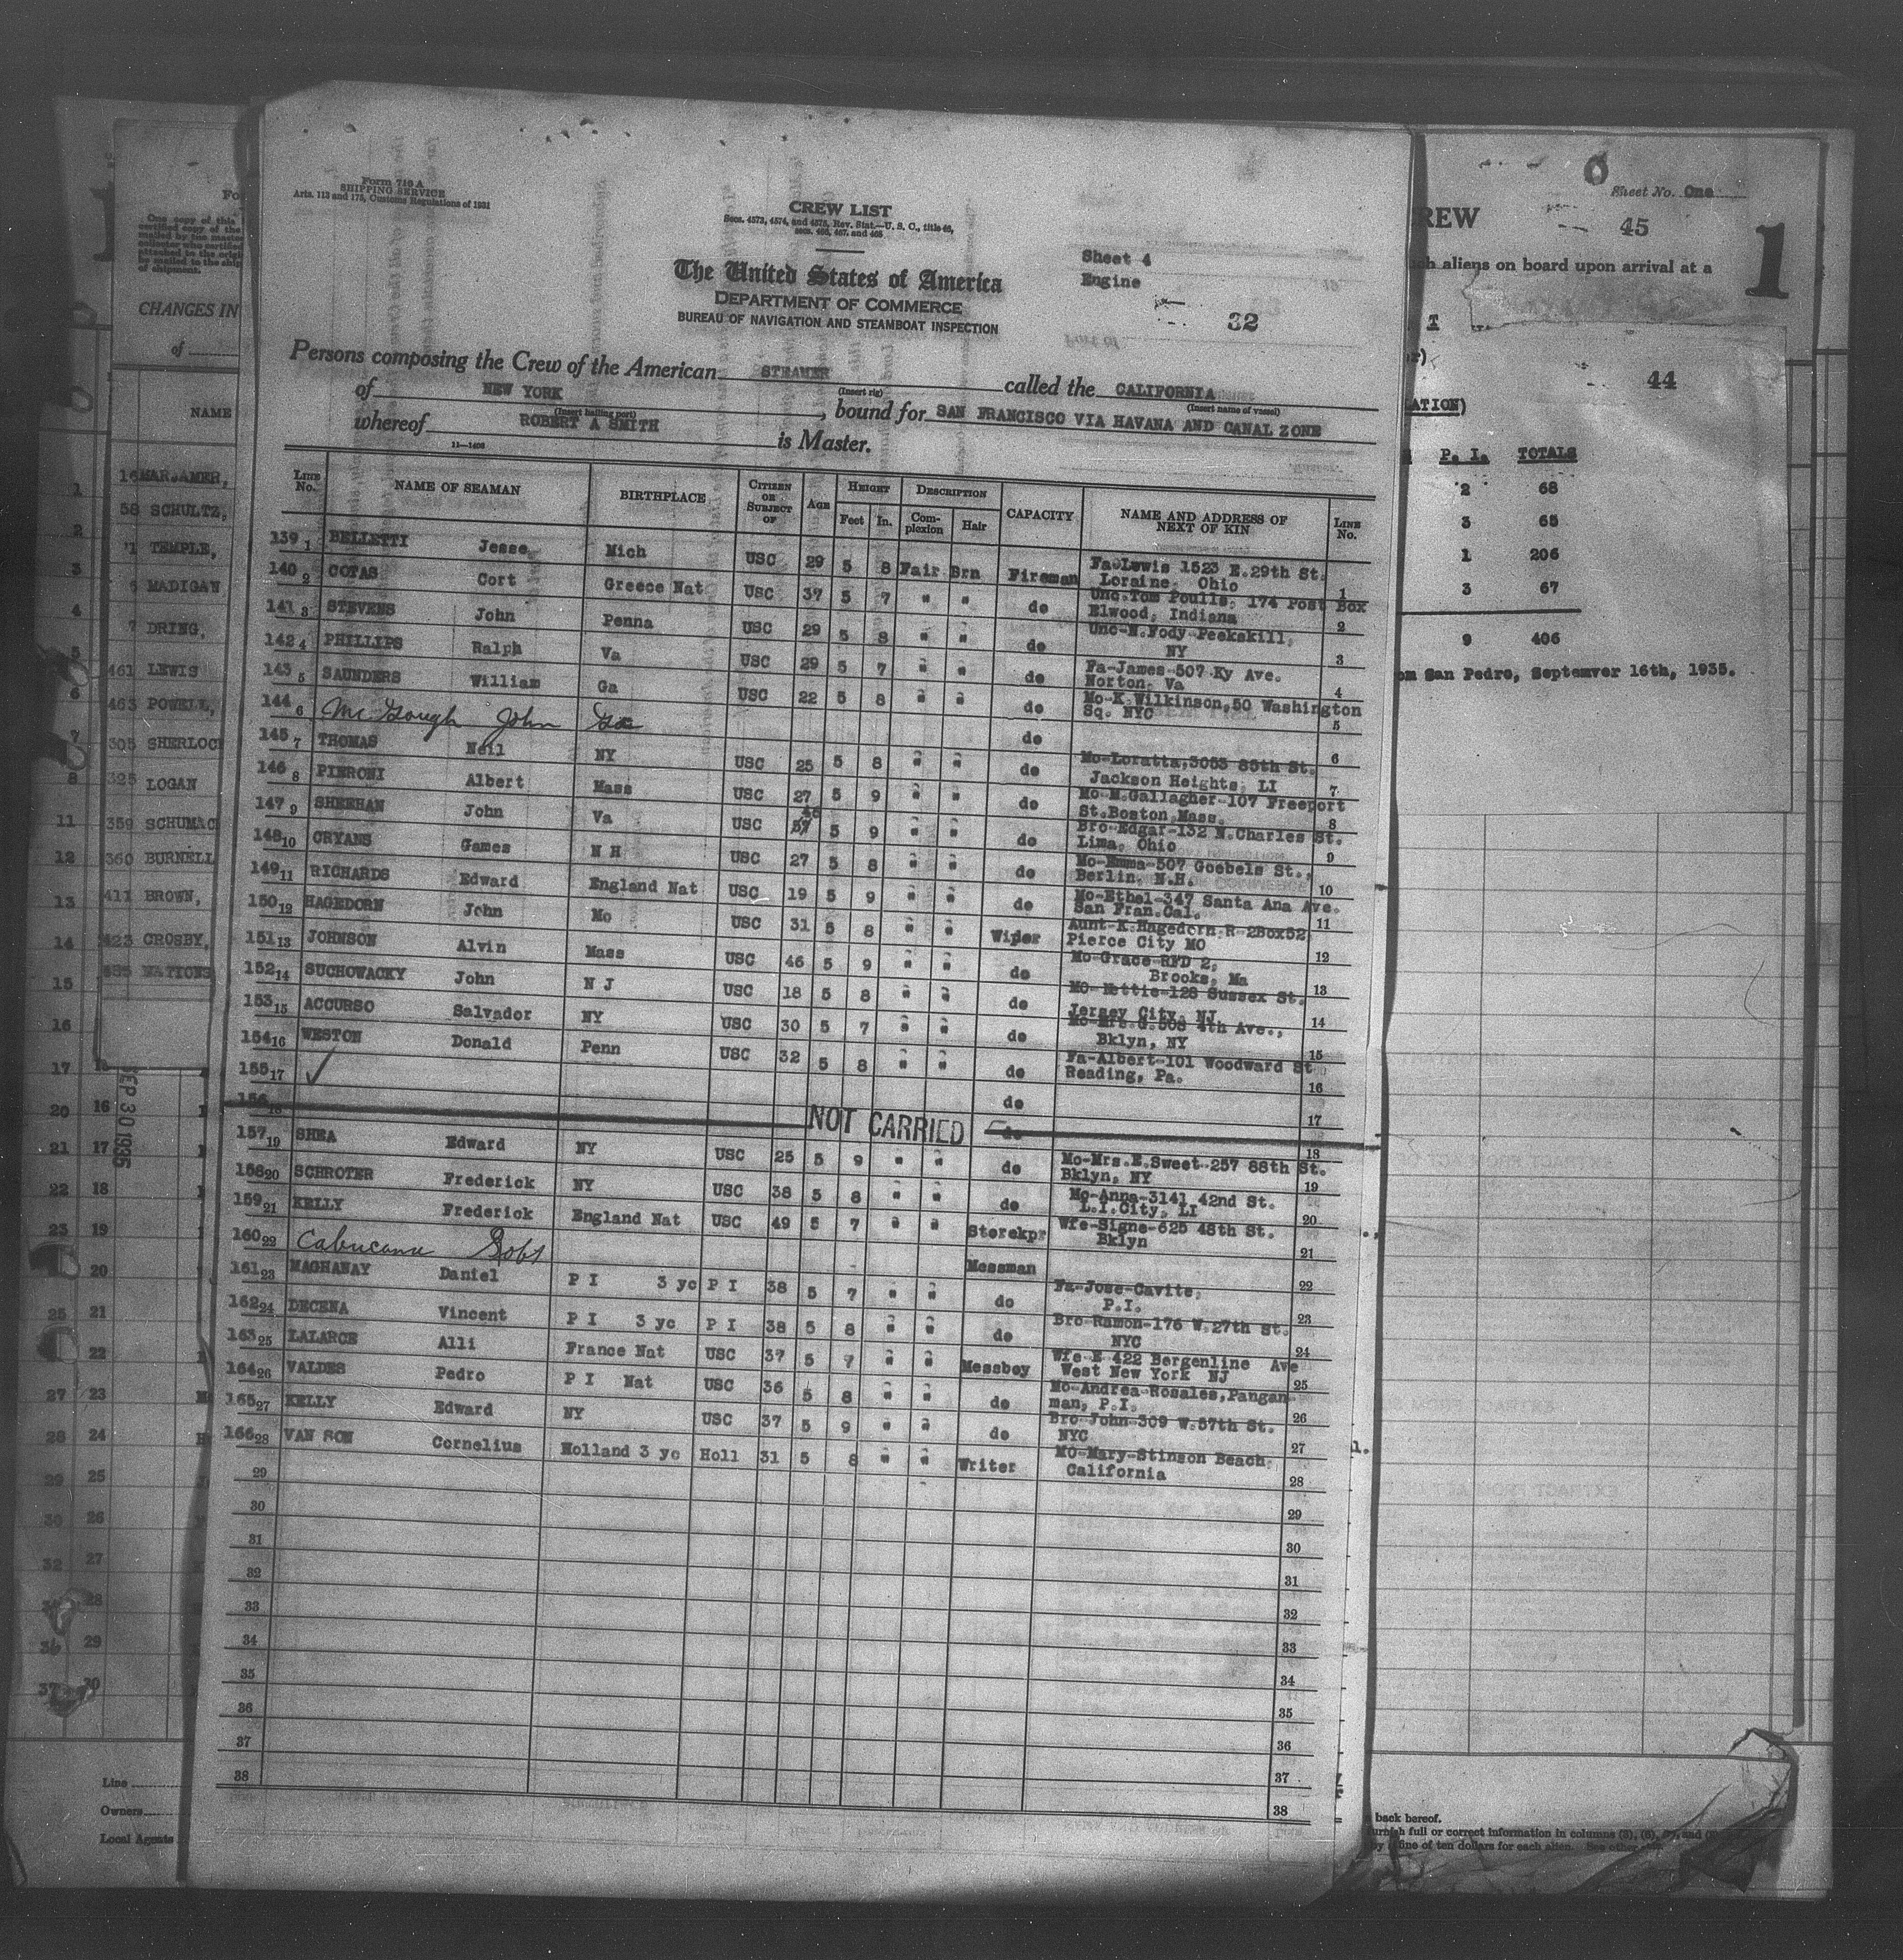 Form 710 A
SHIPPING SERVICE
Arts. 113 and 175, Customs Regulations of 1931
CREW LIST
Secs. 4573, 4574, and 4575, Rev. Stat.—U. S. C., title 46,
secs. 466, 467, and 468
The United States of America
DEPARTMENT OF COMMERCE
BUREAU OF NAVIGATION AND STEAMBOAT INSPECTION
Sheet 4
Engine
32
Persons composing the Crew of the American STEAMER called the CALIFORNIA
(Insert rig) (Insert name of vessel)
of NEW YORK, bound for SAN FRANCISCO VIA HAVANA AND CANAL ZONE
(Insert hailing port)
whereof ROBERT A SMITH is Master.
11—1408
LINE No. NAME OF SEAMAN BIRTHPLACE CITIZEN OR SUBJECT OF AGE HEIGHT Feet In. DESCRIPTION Complexion Hair CAPACITY NAME AND ADDRESS OF NEXT OF KIN LINE No.
139 1 BELLETTI Jesse Mich USC 29 5 8 Fair Brn Fireman Fa-Lewis 1523 E.29th St. Loraine, Ohio 1
140 2 COTAS Cort Greece Nat USC 37 5 7 " " do Unc.Tom Poulls, 174 Post Box Elwood, Indiana 2
141 3 STEVENS John Penna USC 29 5 8 " " do Unc-N.Fody-Peekskill, NY 3
142 4 PHILLIPS Ralph Va USC 29 5 7 " " do Fa-James-507 Ky Ave. Norton, Va 4
143 5 SAUNDERS William Ga USC 22 5 8 " " do Mo-K.Wilkinson,50 Washington Sq. NYC 5
144 6 McGough John do 6
145 7 THOMAS Neil NY USC 25 5 8 " " do Mo-Loratta,3053 85th St. Jackson Heights, LI 7
146 8 PIERONI Albert Mass USC 27 5 9 " " do Mo-M.Gallagher-107 Freeport St.Boston,Mass. 8
147 9 SHEEHAN John Va USC 5 9 " " do Bro-Edgar-132 N.Charles St. Lima, Ohio 9
148 10 CRYANS Games N H USC 27 5 8 " " do Mo-Emma-507 Goebels St., Berlin, N.H. 10
149 11 RICHARDS Edward England Nat USC 19 5 9 " " do Mo-Ethel-347 Santa Ana Ave. San Fran.Cal. 11
150 12 HAGEDORN John Mo USC 31 5 8 " " Wiper Aunt-K.Hagedorn,R-2Box52 Pierce City MO 12
151 13 JOHNSON Alvin Mass USC 46 5 9 " " do Mo-Grace-RFD 2, Brooks, Ma 13
152 14 SUCHOWACKY John N J USC 18 5 8 " " do Mo-Nettie-128 Sussex St. Jersey City, NJ 14
153 15 ACCURSO Salvador NY USC 30 5 7 " " do Mo-Mrs.G.508 4th Ave., Bklyn, NY 15
154 16 WESTON Donald Penn USC 32 5 8 " " do Fa-Albert-101 Woodward St Reading, Pa. 16
155 17 ✓ do 17
156 18 NOT CARRIED do 18
157 19 SHEA Edward NY USC 25 5 9 " " do Mo-Mrs.E.Sweet-257 88th St. Bklyn, NY 19
158 20 SCHROTER Frederick NY USC 38 5 8 " " do Mo-Anna-3141 42nd St. L.I.City, LI 20
159 21 KELLY Frederick England Nat USC 49 5 7 " " Storekpr Wfe-Signe-625 48th St. Bklyn 21
160 22 Messman 22
161 23 MAGHANAY Daniel P I 3 yc P I 38 5 7 " " do Fa-Jose-Cavite, P.I. 23
162 24 DECENA Vincent P I 3 yc P I 38 5 8 " " do Bro-Ramon-176 W.27th St. NYC 24
163 25 LALARCE Alli France Nat USC 37 5 7 " " Messboy Wfe-E 422 Bergenline Ave West New York NJ 25
164 26 VALDES Pedro P I Nat USC 36 5 8 " " do Mo-Andrea-Rosales,Pangan man, P.I. 26
165 27 KELLY Edward NY USC 37 5 9 " " do Bro-John-309 W.57th St. NYC 27
166 28 VAN SON Cornelius Holland 3 yc Holl 31 5 8 " " Writer Mo-Mary-Stinson Beach California 28
29 29
30 30
31 31
32 32
33 33
34 34
35 35
36 36
37 37
38 38
CHANGES IN
of
NAME
MARJAMER,
58 SCHULTZ,
TEMPLE,
MADIGAN
7 DRING,
461 LEWIS
463 POWELL,
305 SHERLOC
325 LOGAN
359 SCHUMAC
360 BURNELL
411 BROWN,
423 CROSBY,
NATIONS
SEP 30 1935
Line
Owners
Local Agents
Sheet No. One
REW
45
1
aliens on board upon arrival at a
44
ATION)
P. I. TOTALS
2 68
3 65
1 206
3 67
9 406
San Pedro, Septemver 16th, 1935.
back hereof.
full or correct information in columns (3), (6), (7), and
fine of ten dollars for each alien.